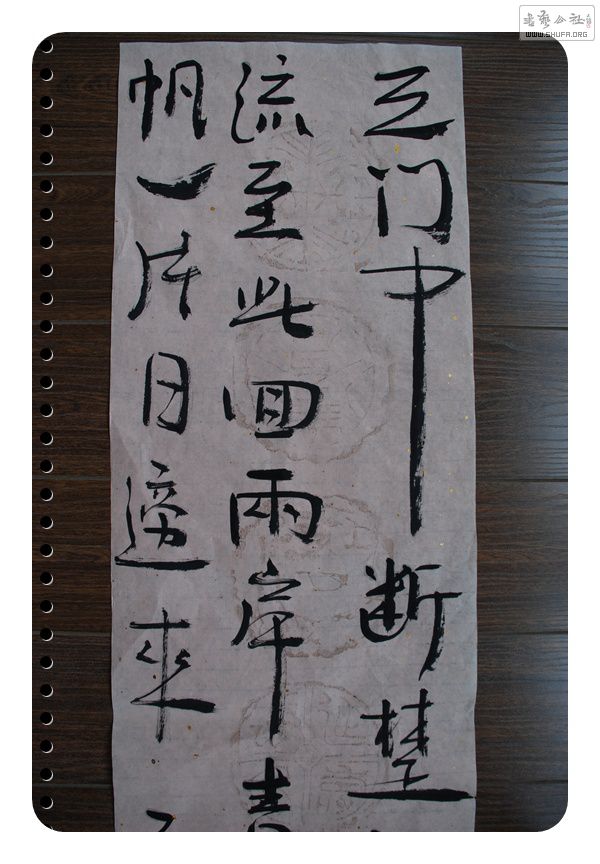 書藝公社
WWW.SHUFA.ORG
天门中断楚
流至此回兩岸青
帆一片日邊來